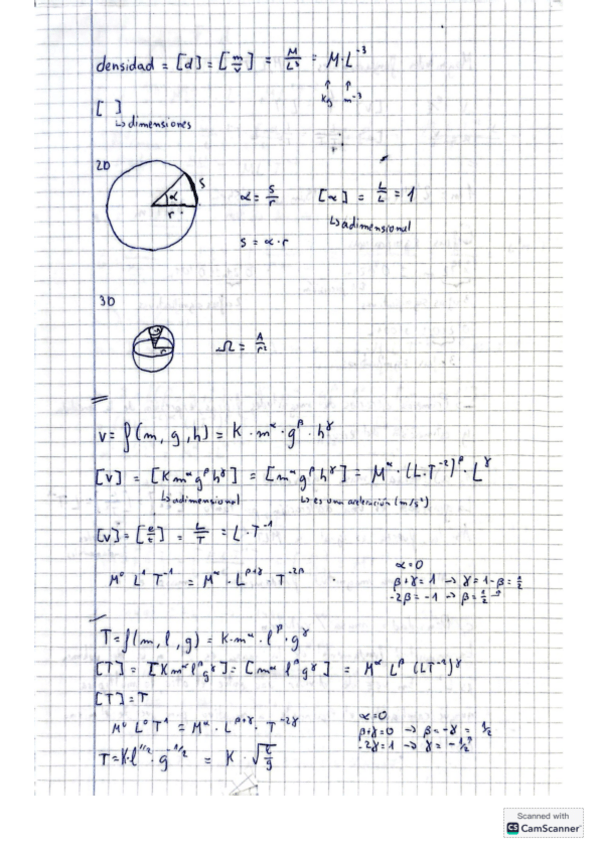 densidad = [d] = [m/v] = M/L³ = M·L⁻³
kg m⁻³
[ ]
↳ dimensiones
2D
s
α
r
α = s/r
[α] = L/L = 1
↳ adimensional
s = α·r
3D
r
Ω = A/r²
v = f(m, g, h) = K·m^α·g^β·h^γ
[v] = [K m^α g^β h^γ] = [m^α g^β h^γ] = M^α·(L·T⁻²)^β·L^γ
↳ adimensional ↳ es una aceleración (m/s²)
[v] = [e/t] = L/T = L·T⁻¹
M⁰ L¹ T⁻¹ = M^α·L^(β+γ)·T^(-2β)
α = 0
β+γ = 1 → γ = 1-β = 1/2
-2β = -1 → β = 1/2
T = f(m, l, g) = K·m^α·l^β·g^γ
[T] = [K m^α l^β g^γ] = [m^α l^β g^γ] = M^α L^β (LT⁻²)^γ
[T] = T
M⁰ L⁰ T¹ = M^α·L^(β+γ)·T^(-2γ)
α = 0
β+γ = 0 → β = -γ = 1/2
-2γ = 1 → γ = -1/2
T = K·l^(1/2)·g^(-1/2) = K·√(l/g)
Scanned with
CS CamScanner